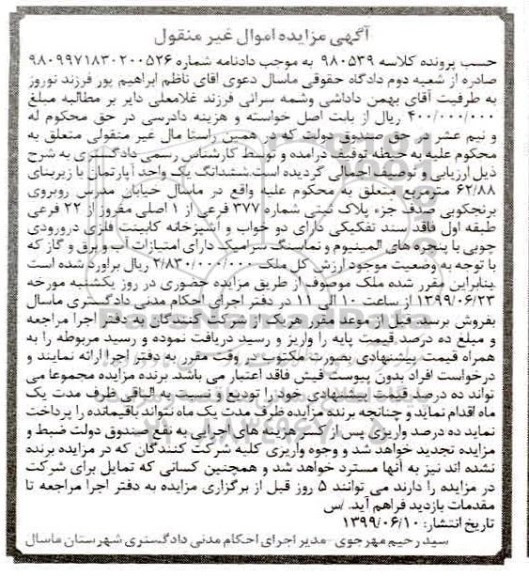 آگهی مزایده اموال غیر منقول
حسب پرونده کلاسه ۹۸۰۵۳۹ به موجب دادنامه شماره ۹۸۰۹۹۷۱۸۳۰۲۰۰۵۲۶
صادره از شعبه دوم دادگاه حقوقی ماسال دعوی اقای ناظم ابراهیم پور فرزند نوروز
به طرفیت آقای بهمن داداشی وشمه سرائی فرزند غلامعلی دایر بر مطالبه مبلغ
۴۰۰/۰۰۰/۰۰۰ ریال از بابت اصل خواسته و هزینه دادرسی در حق محکوم له
و نیم عشر در حق صندوق دولت که در همین راستا مال غیر منقولی متعلق به
محکوم علیه به حیطه توقیف درامده و توسط کارشناس رسمی دادگستری به شرح
ذیل ارزیابی و توصیف اجمالی گردیده است.ششدانگ یک واحد آپارتمان با زیربنای
۶۲/۸۸ مترمربع متعلق به محکوم علیه واقع در ماسال خیابان مدرس روبروی
برنجکوبی صدف جزء پلاک ثبتی شماره ۳۷۷ فرعی از ۱ اصلی مفروز از ۲۲ فرعی
طبقه اول فاقد سند تفکیکی دارای دو خواب و آشپزخانه کابینت فلزی درورودی
چوبی با پنجره های المینیوم و نماسنگ سرامیک دارای امتیازات آب و برق و گاز که
با توجه به وضعیت موجود ارزش کل ملک ۲/۸۳۰/۰۰۰/۰۰۰ ریال براورد شده است
.بنابراین مقرر شده ملک موصوف از طریق مزایده حضوری در روز یکشنبه مورخه
۱۳۹۹/۰۶/۲۳ از ساعت ۱۰ الی ۱۱ در دفتر اجرای احکام مدنی دادگستری ماسال
بفروش برسد. قبل از موعد مقرر هریک از شرکت کنندگان به دفتر اجرا مراجعه
و مبلغ ده درصد قیمت پایه را واریز و رسید دریافت نموده و رسید مربوطه را به
همراه قیمت پیشنهادی بصورت مکتوب در وقت مقرر به دفتر اجرا ارائه نمایند و
درخواست افراد بدون پیوست فیش فاقد اعتبار می باشد. برنده مزایده مجموعا می
تواند ده درصد قیمت پیشنهادی خود را تودیع و نسبت به الباقی ظرف مدت یک
ماه اقدام نماید و چنانچه برنده مزایده ظرف مدت یک ماه نتواند باقیمانده را پرداخت
نماید ده درصد واریزی پس از کسر هزینه های اجرایی به نفع صندوق دولت ضبط و
مزایده تجدید خواهد شد و وجوه واریزی کلیه شرکت کنندگان که در مزایده برنده
نشده اند نیز به آنها مسترد خواهد شد و همچنین کسانی که تمایل برای شرکت
در مزایده را دارند می توانند ۵ روز قبل از برگزاری مزایده به دفتر اجرا مراجعه تا
مقدمات بازدید فراهم آید. /س
تاریخ انتشار: ۱۳۹۹/۰۶/۱۰
سید رحیم مهرجوی -مدیر اجرای احکام مدنی دادگستری شهرستان ماسال